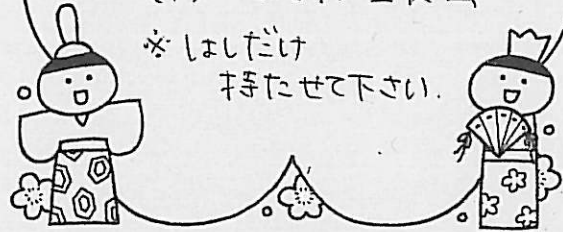 ※ はしだけ
持たせて下さい.